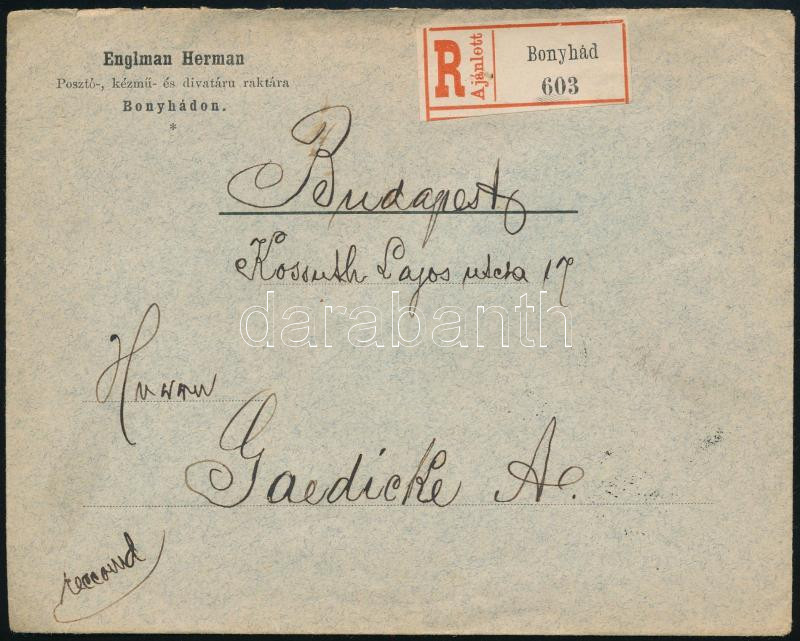 Englman Herman
Posztó-, kézmű- és divatáru raktára
Bonyhádon.
*
R
Ajánlott
Bonyhád
603
Budapest
Kossuth Lajos utcza 17
darabanth
Herrn
Gaedicke A.
reccomd